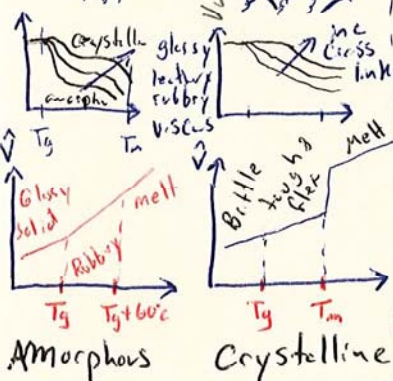 crystallin
glassy
leathery
rubbery
viscus
amorphs
Tg
Tm
inc
Cross
link
V̂
Glassy
Solid
Rubbery
melt
Tg
Tg+60°C
Amorphous
V̂
Brittle
tough &
flex
Melt
Tg
Tm
Crystalline